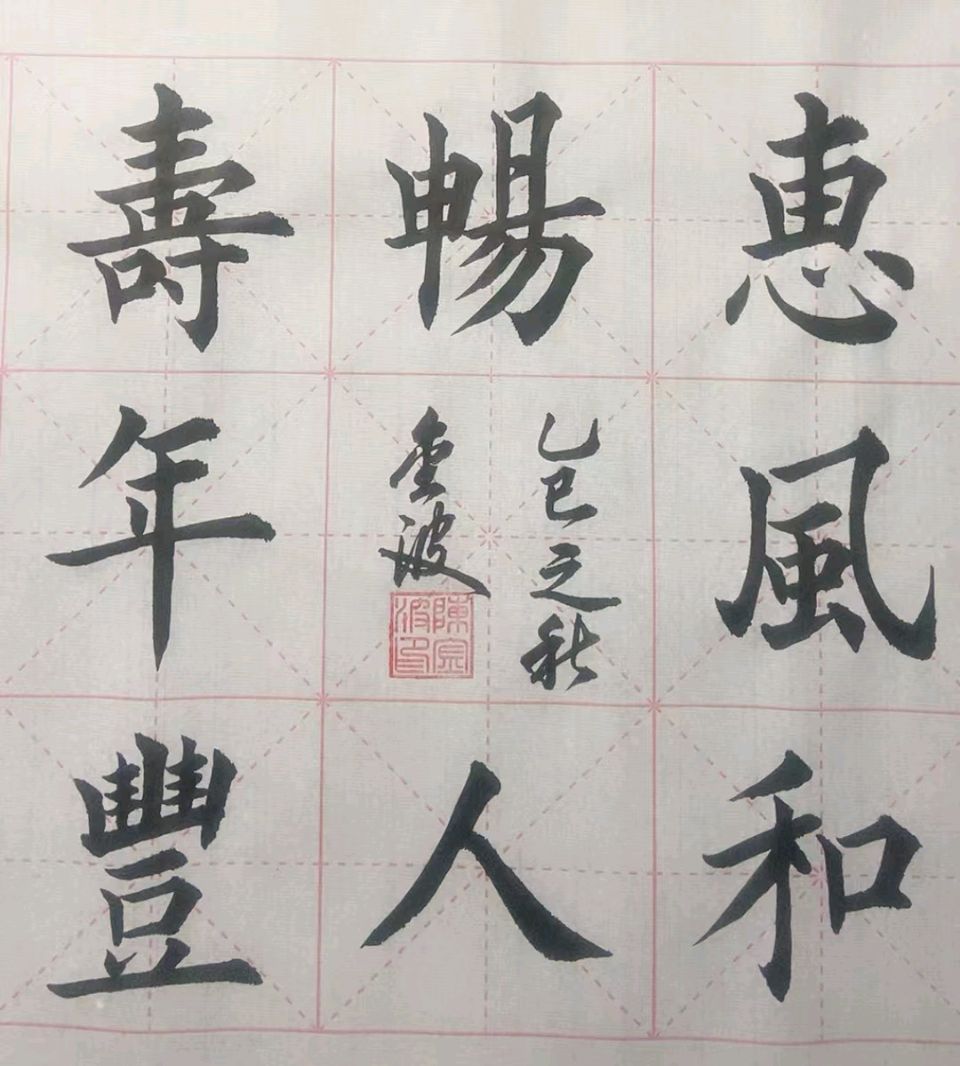 恵風和
暢
人
壽年豐
乙巳之秋
波